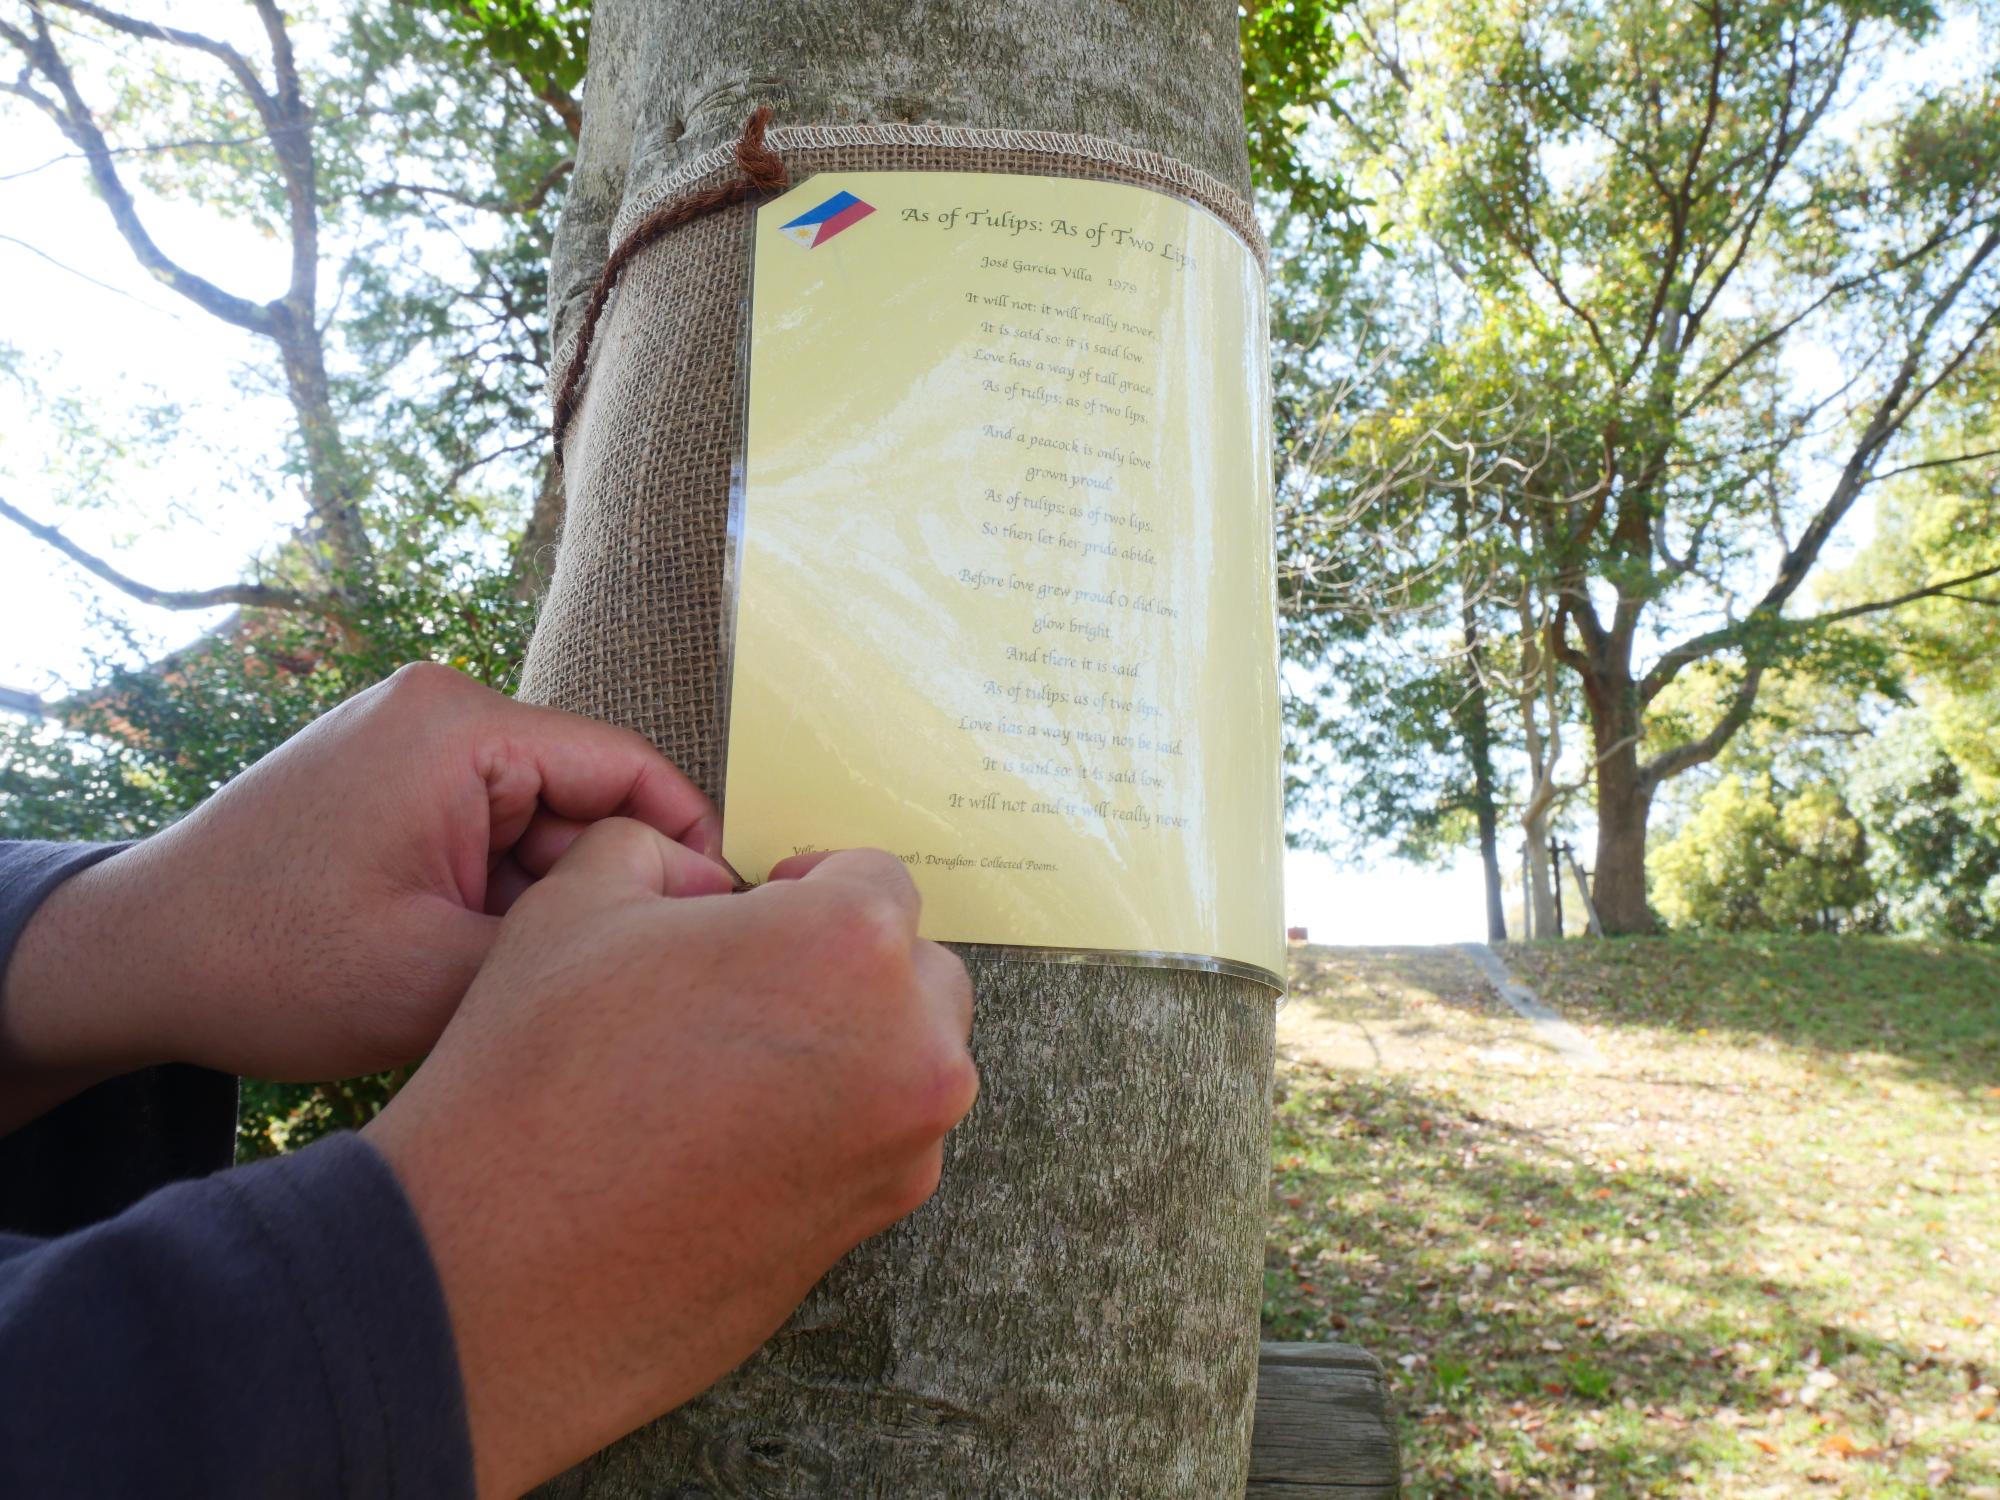 As of Tulips: As of Two Lips
José García Villa 1979
It will not: it will really never.
It is said so: it is said low.
Love has a way of tall grace.
As of tulips: as of two lips.
And a peacock is only love
grown proud.
As of tulips: as of two lips.
So then let her pride abide.
Before love grew proud O did love
glow bright.
And there it is said.
As of tulips: as of two lips.
Love has a way may not be said.
It is said so: it is said low.
It will not and it will really never.
Doveglion: Collected Poems.